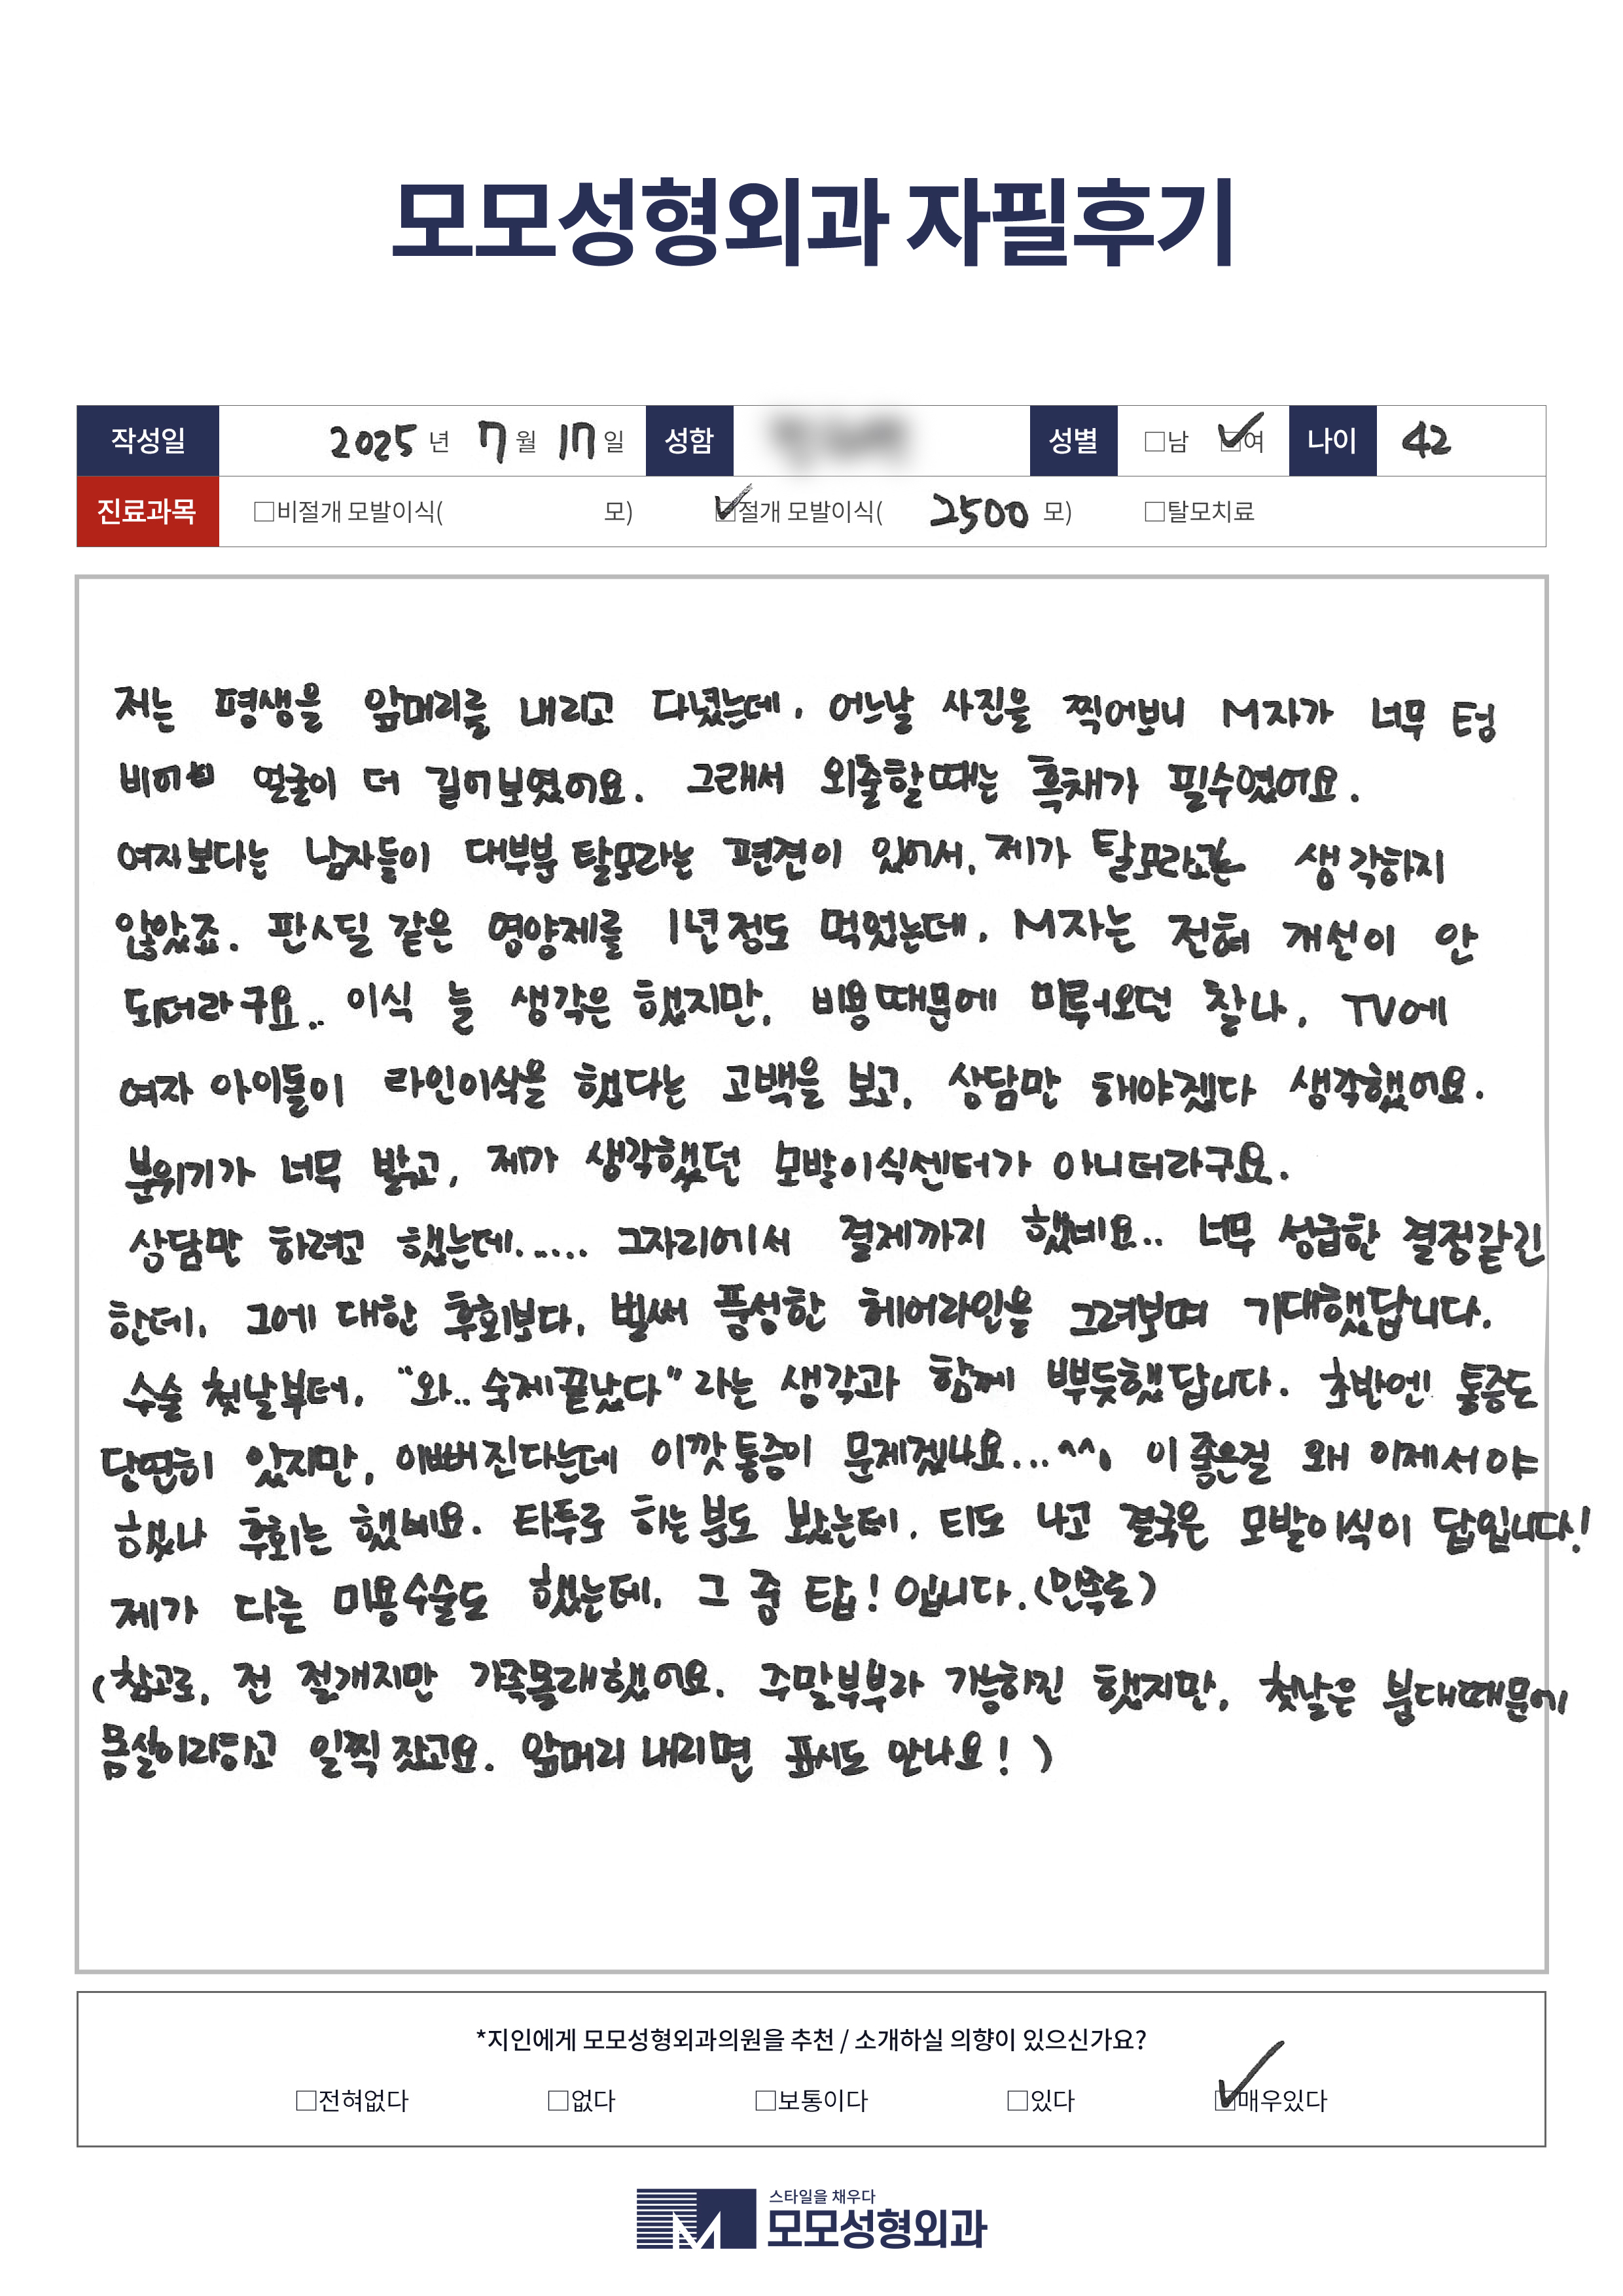 모모성형외과 자필후기
작성일 2025 년 7 월 17 일 성함 성별 □남 ☑여 나이 42
진료과목 □비절개 모발이식( 모) ☑절개 모발이식( 2500 모) □탈모치료
저는 평생을 앞머리를 내리고 다녔는데, 어느날 사진을 찍어보니 M자가 너무 텅
비어 얼굴이 더 길어보였어요. 그래서 외출할때는 흑채가 필수였어요.
여자보다는 남자들이 대부분 탈모라는 편견이 있어서, 제가 탈모라고는 생각하지
않았죠. 판시딜 같은 영양제를 1년정도 먹었는데, M자는 전혀 개선이 안
되더라구요.. 이식 늘 생각은 했지만, 비용때문에 미뤄오던 찰나, TV에
여자 아이돌이 라인이식을 했다는 고백을 보고, 상담만 해야겠다 생각했어요.
분위기가 너무 밝고, 제가 생각했던 모발이식센터가 아니더라구요.
상담만 하려고 했는데...... 그자리에서 결제까지 했네요.. 너무 성급한 결정같긴
한데, 그에 대한 후회보다, 벌써 풍성한 헤어라인을 그려보며 기대했답니다.
수술 첫날부터, "와.. 숙제끝났다"라는 생각과 함께 뿌듯했답니다. 초반엔! 통증도
당연히 있지만, 이뻐진다는데 이깟 통증이 문제겠나요...^^, 이 좋은걸 왜 이제서야
했나 후회는 했네요. 타투로 하는분도 봤는데, 티도 나고 결국은 모발이식이 답입니다!
제가 다른 미용수술도 했는데, 그 중 탑! 입니다.(만족도)
(참고로, 전 절개지만 가족몰래했어요. 주말부부라 가능하긴 했지만, 첫날은 붕대때문에
몸살이라하고 일찍 잤고요. 앞머리 내리면 표시도 안나요! )
*지인에게 모모성형외과의원을 추천 / 소개하실 의향이 있으신가요?
□전혀없다 □없다 □보통이다 □있다 ☑매우있다
스타일을 채우다
모모성형외과